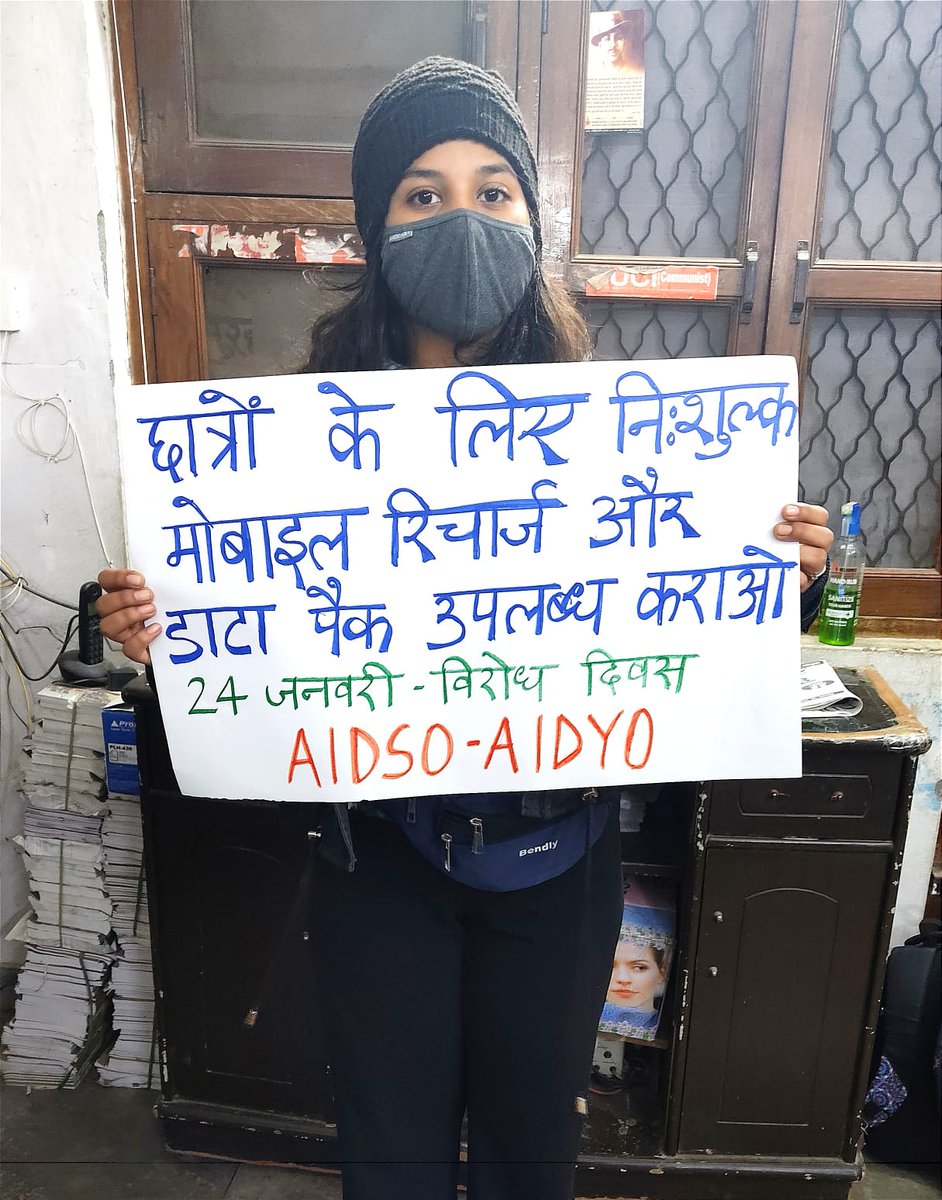 UCI (Communist)
छात्रों के लिए निःशुल्क
मोबाइल रिचार्ज और
डाटा पैक उपलब्ध कराओ
24 जनवरी - विरोध दिवस
AIDSO-AIDYO
HAND RUB
SANITIZE
Bendly